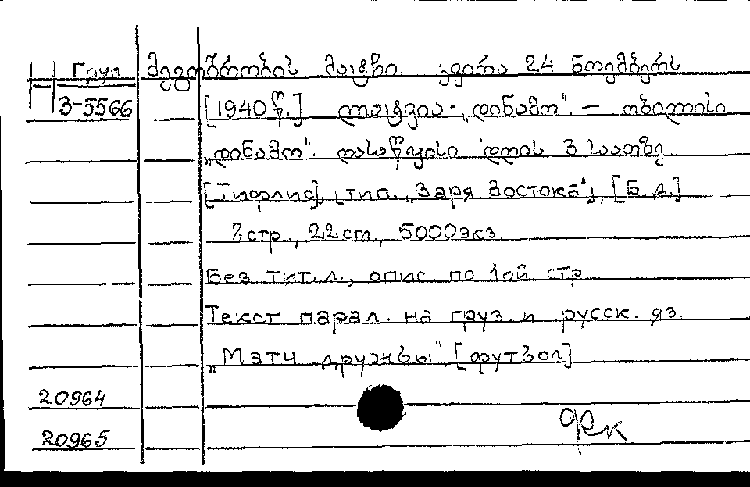 Груз. მეგობრობის მატჩი. კვირა 24 ნოემბერს
3-5566 [1940 წ.] ლატვია-„დინამო“. – თბილისი
„დინამო“. დასაწყისი დღის 3 საათზე.
[Тифлис], [тип. „Заря Востока“], [Б.д.]
2 стр., 22 cm., 5000 экз.
Без тит.л., опис. по 1ой стр.
Текст парал. на груз. и русск. яз.
„Матч дружбы“ [футбол]
20964
20965